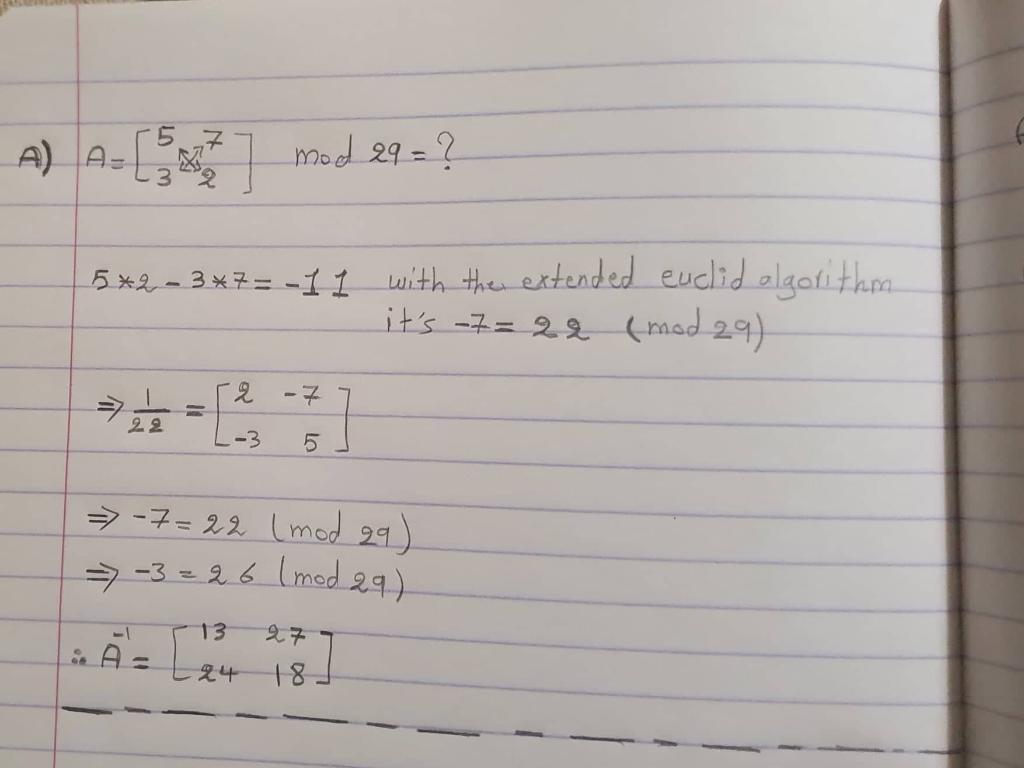 A) A = [ 5 7 mod 29 = ?
3 2 ]
5 * 2 - 3 * 7 = -11 with the extended euclid algorithm
it's -7 = 22 (mod 29)
⇒ 1/22 = [ 2 -7
-3 5 ]
⇒ -7 = 22 (mod 29)
⇒ -3 = 26 (mod 29)
∴ A⁻¹ = [ 13 27
24 18 ]